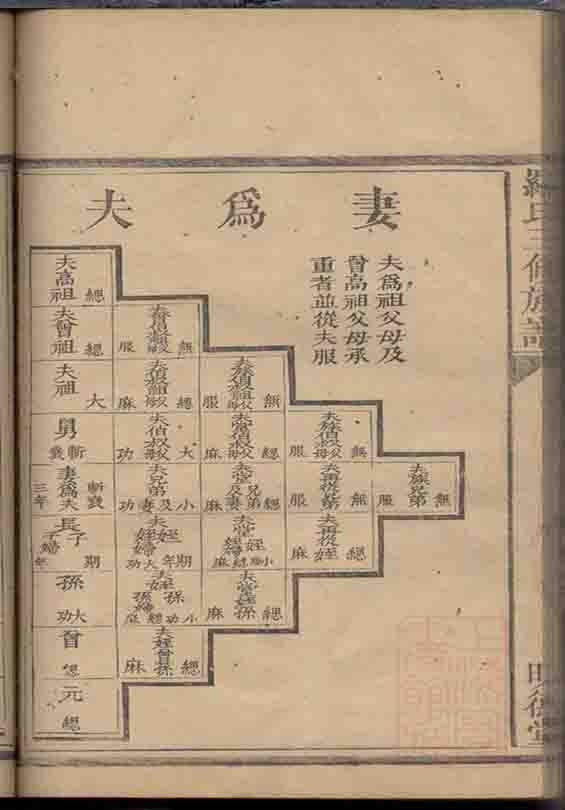 羅氏三修族譜
妻為夫
夫為祖父母及
曾高祖父母承
重者並從夫服
夫高祖 緦
夫曾祖 緦
夫曾伯叔祖父母 無服
夫祖 大
夫伯叔祖父母 緦麻
夫族伯叔祖父母 無服
舅 斬衰
夫伯叔父母 大功
夫堂伯叔父母 緦麻
夫族伯叔父母 無服
妻為夫 斬衰三年
夫兄弟及妻 小功
夫堂兄弟及妻 緦麻
夫再從兄弟 無服
夫族兄弟 無服
長子 子婦 期年
夫姪 姪婦 期年 大功
夫堂姪 姪婦 小功 緦麻
夫再從姪 緦麻
孫 大功
夫姪孫 孫婦 小功 緦麻
夫堂姪孫 緦麻
曾 緦
夫姪曾孫 緦麻
元 緦
明德堂